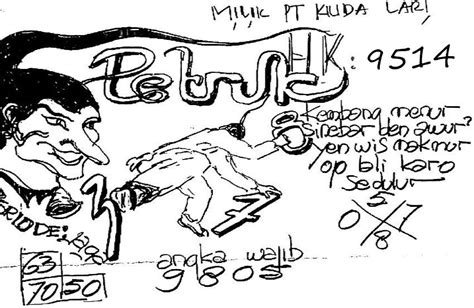 MILIK PT KUDA LARI
Petruk HK: 9514
Kembang menur
sinebar ben awur?
yen wis makmur
op bli karo
sedulur
5
0 7
8
3
7
63
70 50
angka wajib
9805